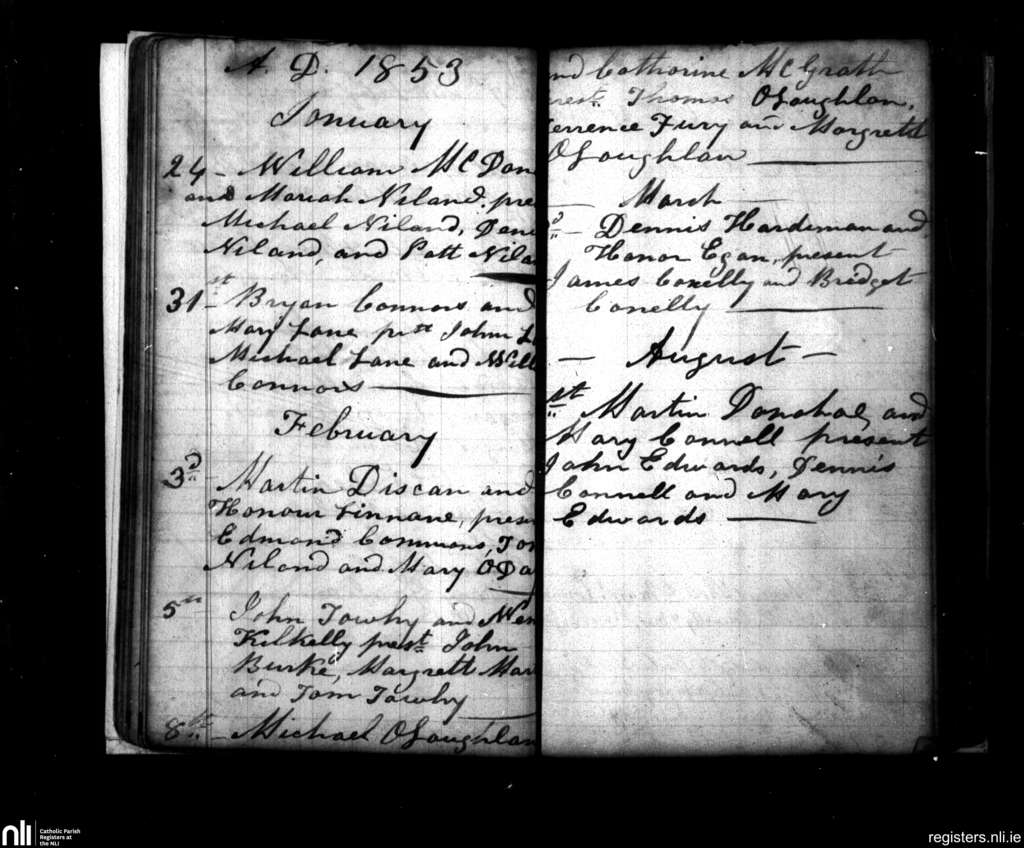 A. D. 1853
January
24 - William McDon
and Mariah Niland. pre
Michael Niland, Den
Niland, and Patt Nila
31st - Bryan Connors and
Mary Lane pstt John L
Michael Lane and Will
Connors
February
3d Martin Discan and
Honour Linnane, prese
Edmond Commons, Tom
Niland and Mary O Da
5th John Towhy and
Kilkelly prest John
Burke, Margrett Mar
and Tom Towhy
8th - Michael OLoughlan
nd Catherine McGrath
rest Thomas OLoughlan,
Terrence Fury and Margrett
OLoughlan
March
d - Dennis Hardiman and
Honor Egan, present
James Conelly and Bridget
Conelly
- August -
st Martin Donohoe, and
Mary Connell present
John Edwards, Dennis
Connell and Mary
Edwards
nli Catholic Parish
Registers at
the NLI
registers.nli.ie